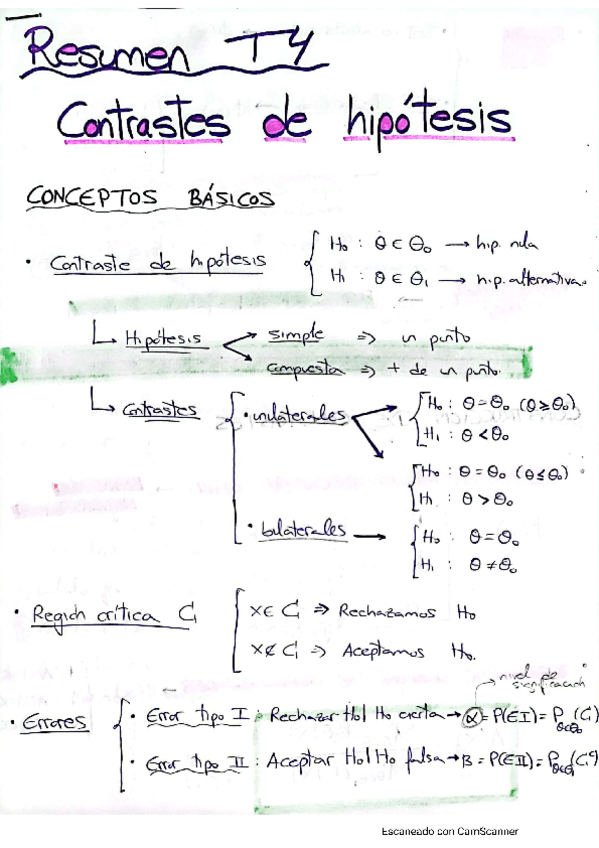 Resumen T4
Contrastes de hipótesis
CONCEPTOS BÁSICOS
· Contraste de hipótesis { H₀ : θ ⊂ Θ₀ → hip. nula
H₁ : θ ∈ Θ₁ → hip. alternativa.
↳ Hipótesis → simple => un punto
→ compuesta => + de un punto.
↳ Contrastes { · unilaterales → { H₀ : θ = θ₀ (θ ≥ θ₀)
H₁ : θ < θ₀
→ { H₀ : θ = θ₀ (θ ≤ θ₀)
H₁ : θ > θ₀
· bilaterales → { H₀ : θ = θ₀
H₁ : θ ≠ θ₀
· Región crítica C₁ { x ∈ C₁ => Rechazamos H₀
x ∉ C₁ => Aceptamos H₀.
→ nivel de significación
· Errores { · Error tipo I : Rechazar H₀ | H₀ cierta → α = P(EI) = P θ∈Θ₀ (C₁)
· Error tipo II : Aceptar H₀ | H₀ falsa → β = P(EII) = P θ∈Θ₁ (C₁ᶜ)
Escaneado con CamScanner